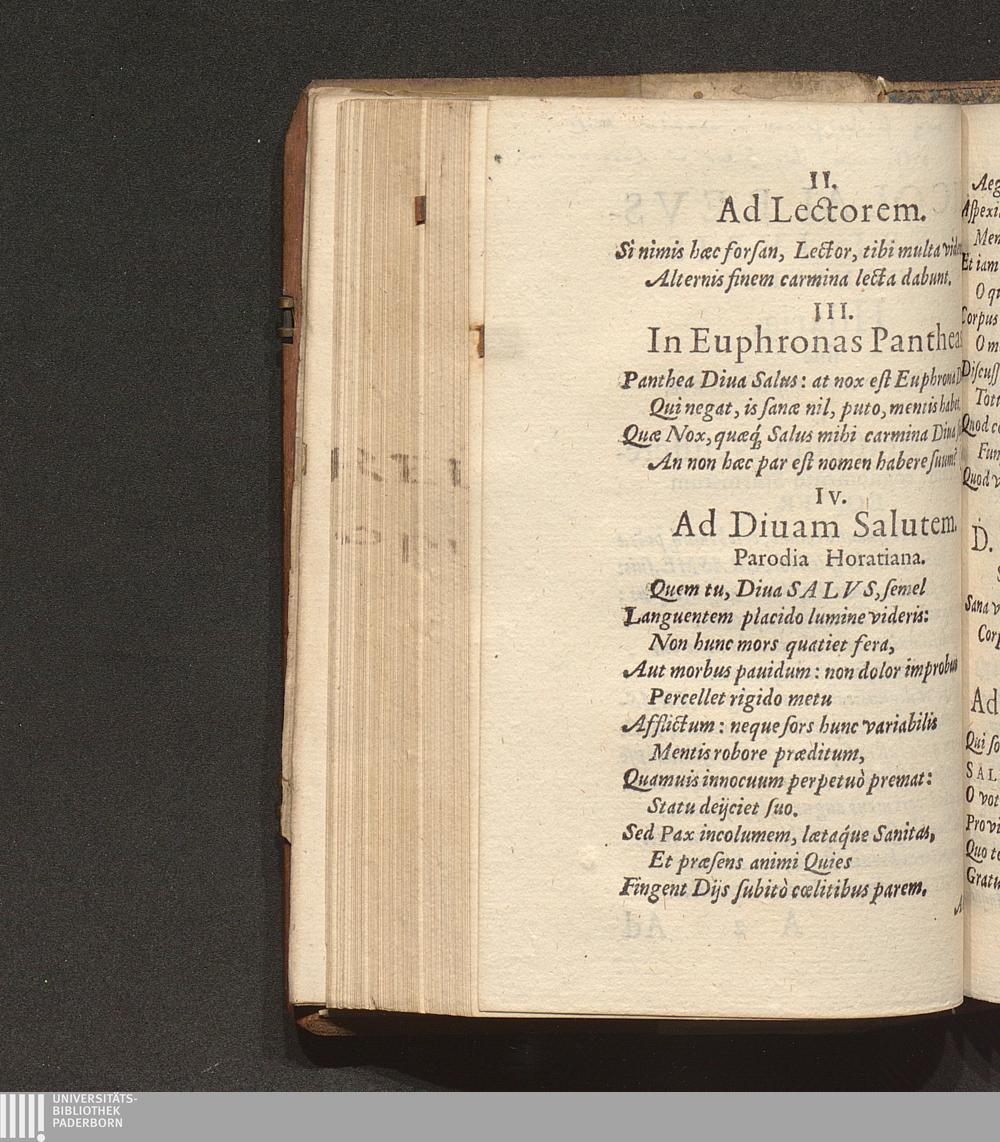 II.
Ad Lectorem.
Si nimis hæc forſan, Lector, tibi multa
Alternis finem carmina lecta dabunt.
III.
In Euphronas Pantheas
Panthea Diua Salus: at nox eſt Euphrona
Qui negat, is ſanæ nil, puto, mentis habet.
Quæ Nox, quæq́; Salus mihi carmina Diua
An non hæc par eſt nomen habere ſuum?
IV.
Ad Diuam Salutem.
Parodia Horatiana.
Quem tu, Diua SALVS, ſemel
Languentem placido lumine videris:
Non hunc mors quatiet fera,
Aut morbus pauidum: non dolor improbus
Percellet rigido metu
Afflictum: neque ſors hunc variabilis
Mentis robore præditum,
Quamuis innocuum perpetuò premat:
Statu deijciet ſuo.
Sed Pax incolumem, lætaq́ue Sanitas,
Et præſens animi Quies
Fingent Dijs ſubitò cœlitibus parem.
Aeg
Aſpexi
Men
Et iam
O qu
Corpus
O m
Diſcuſſ
Tot
Quod c
Fun
Quod v
D.
S
Sana v
Corp
Ad
Qui ſo
SAL
O vot
Pro vi
Quo te
Gratu
UNIVERSITÄTS-
BIBLIOTHEK
PADERBORN